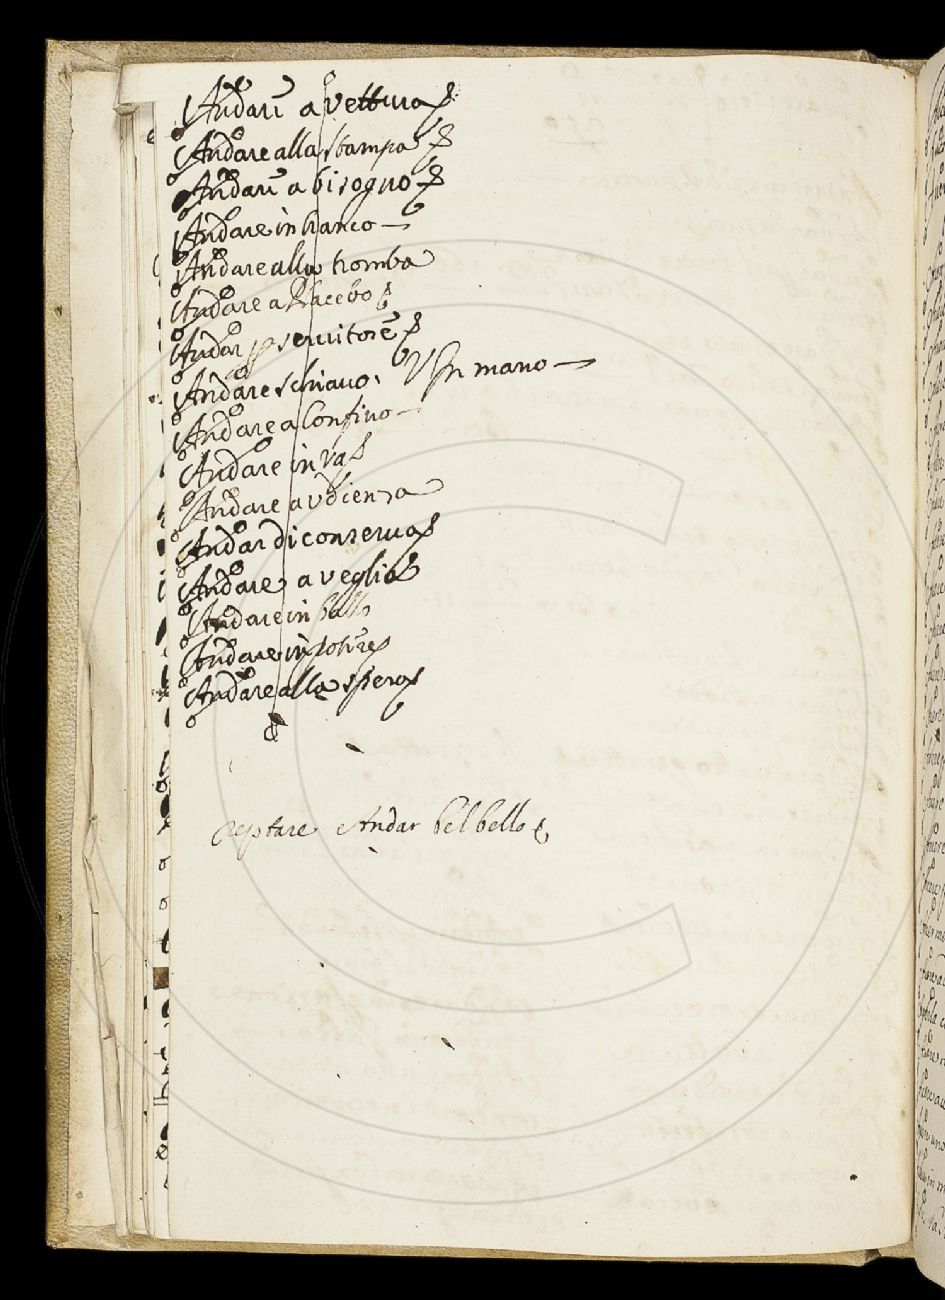 Andare a vettura
Andare alla stampa
Andare a bisogno
Andare in banco
Andare alla tromba
Andare a Placebo
Andar p servitore
Andare schiavo. V in mano
Andare a Confino
Andare in va
Andare a vdienza
Andar di conserva
Andare a veglia
Andare in ballo
Andare in
Andare alla spera
Reptare Andar bel bello